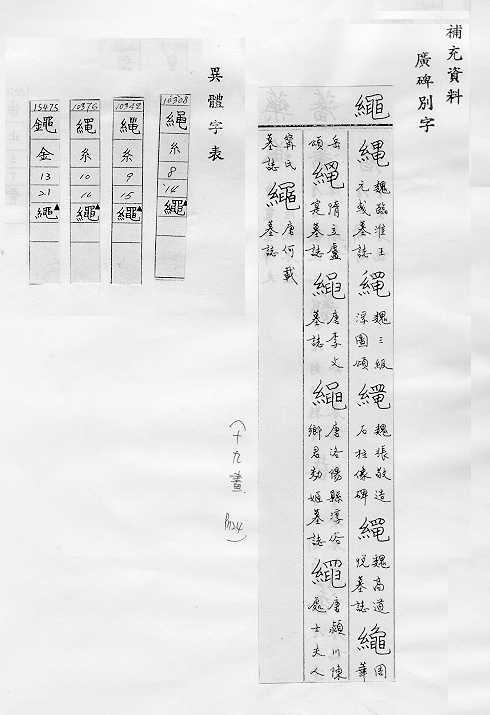 補充資料
廣碑別字
繩
魏臨淮王
元彧墓誌
魏三級
浮圖頌
魏張敬造
石柱像碑
魏高道
悅墓誌
周華
岳頌
隋主盧
寔墓誌
唐李文
墓誌
唐洛陽縣淳俗
鄉君効姬墓誌
唐潁川陳
處士夫人
甯氏
墓誌
唐何載
墓誌
異體字表
10308
繩
糸
8
14
繩
10342
繩
糸
9
15
繩
10376
繩
糸
10
16
繩
15475
金
13
21
繩
(十九畫 P124)